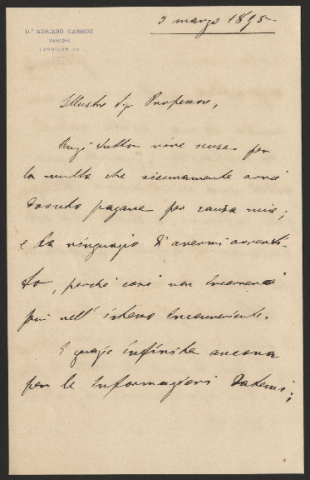 Dr. ADRIANO GARBINI
VERONA
3 marzo 1895
Illustre Sig. Professore,
Anzi tutto vive scuse per
la multa che sicuramente avrà
dovuto pagare per causa mia;
e la ringrazio d'avermi avverti-
to, perché così non incorrerò
più nell'istesso inconveniente.
E grazie infinite ancora
per le informazioni datemi;